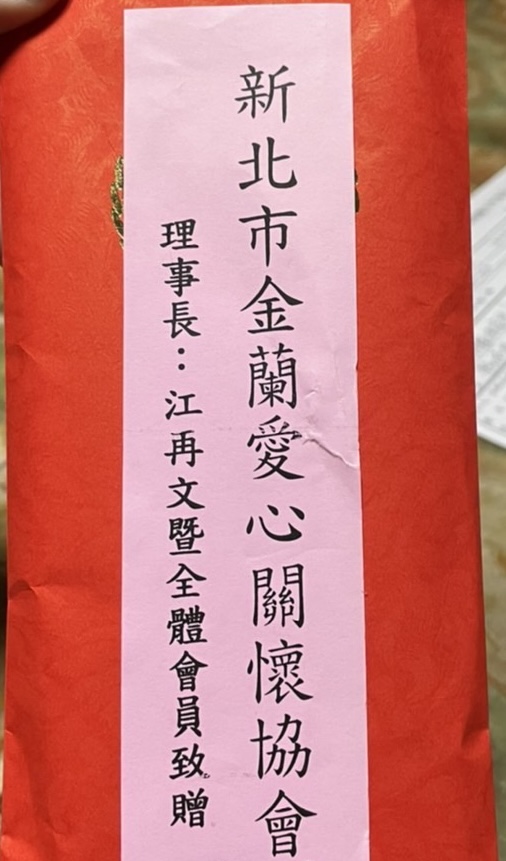 新北市金蘭愛心關懷協會
理事長：江再文暨全體會員致贈